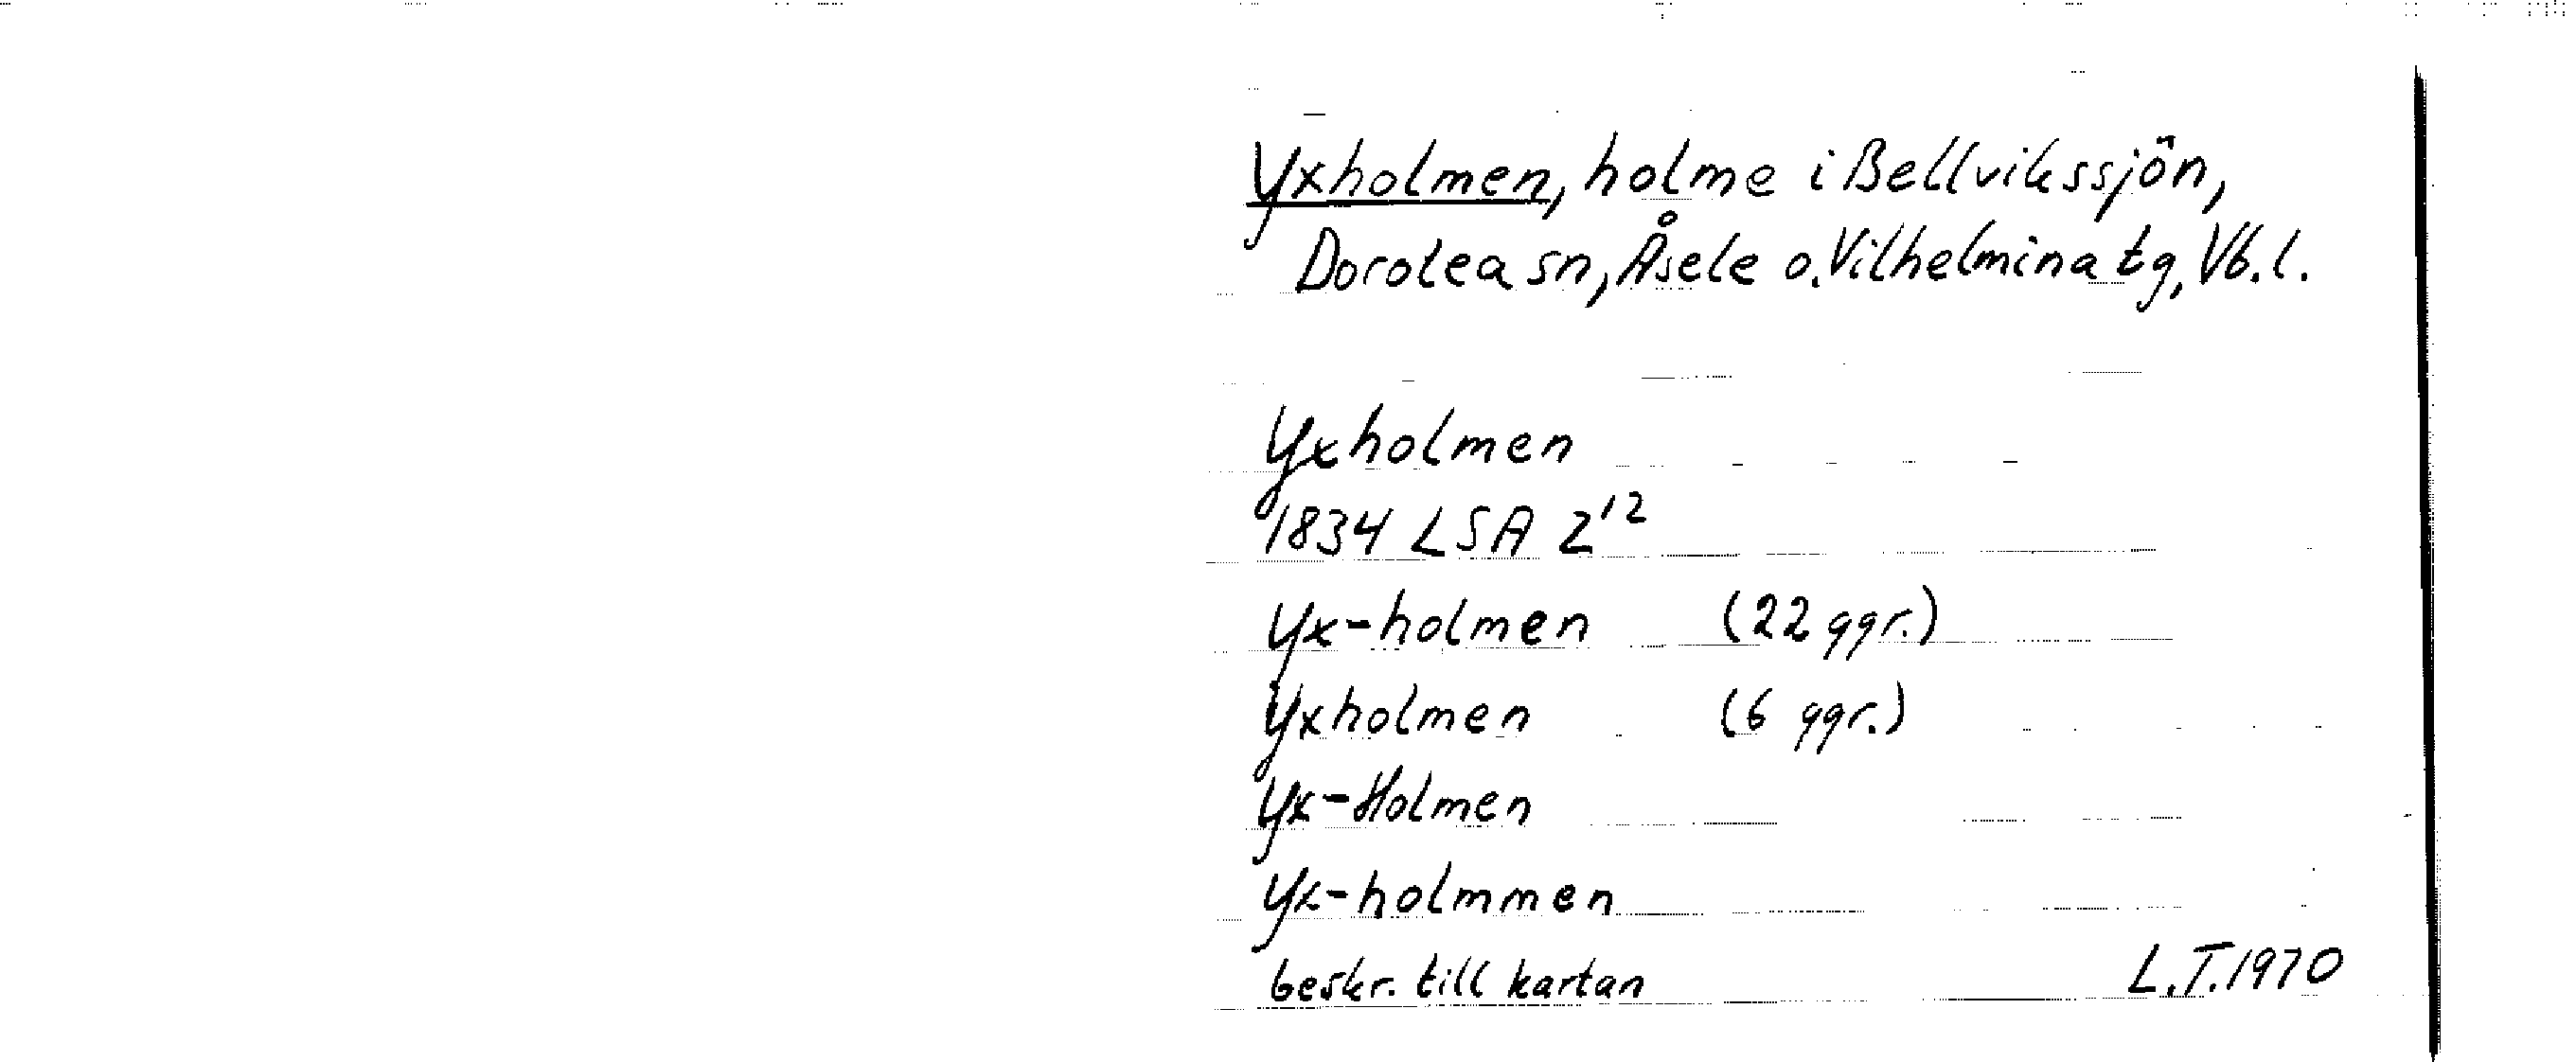 Yxholmen, holme i Bellvikssjön,
Dorotea sn, Åsele o. Vilhelmina tg, Vb. l.
Yxholmen
1834 LSA Z¹²
Yx-holmen (22 ggr.)
Yxholmen (6 ggr.)
Yx-Holmen
Yx-holmmen
beskr. till kartan L.T. 1970